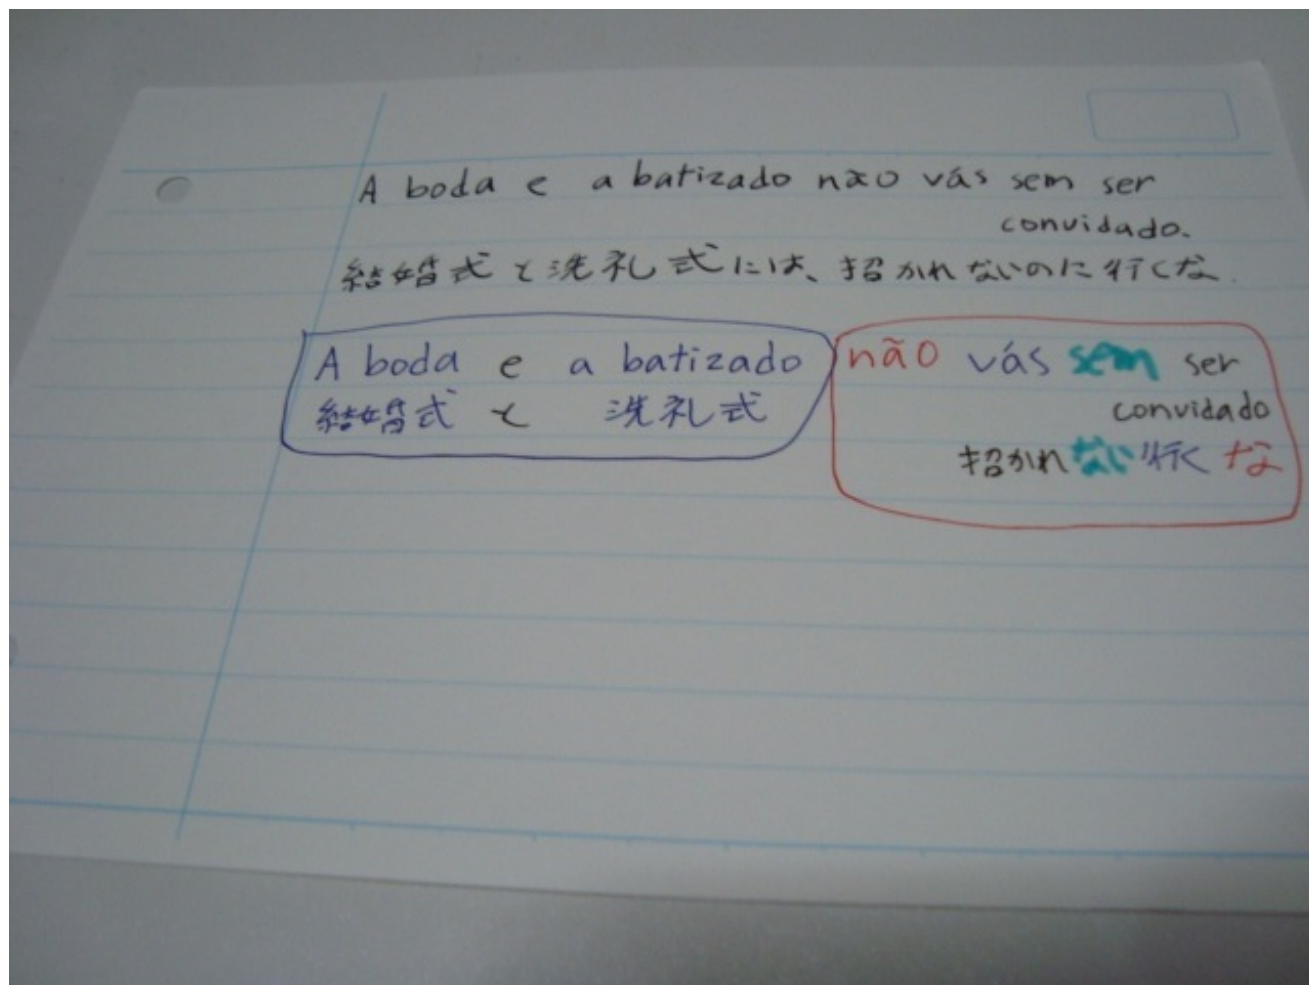 A boda e a batizado não vás sem ser
convidado.
結婚式と洗礼式には、招かれないのに行くな.
A boda e a batizado não vás sem ser
convidado
結婚式 と 洗礼式
招かれない行くな